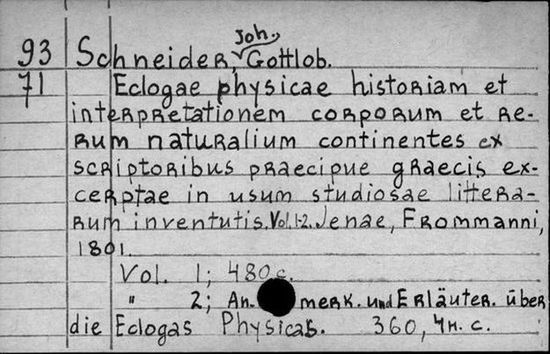 93 Schneider, Joh. Gottlob.
71 Eclogae physicae historiam et
interpretationem corporum et re-
rum naturalium continentes ex
scriptoribus praecipue graecis ex-
cerptae in usum studiosae littera-
rum inventutis. Vol. 1-2. Jenae, Frommanni,
1801.
Vol. 1; 480 c.
" 2; An. merk. und Erläuter. über
die Eclogas Physicas. 360, 4n. c.